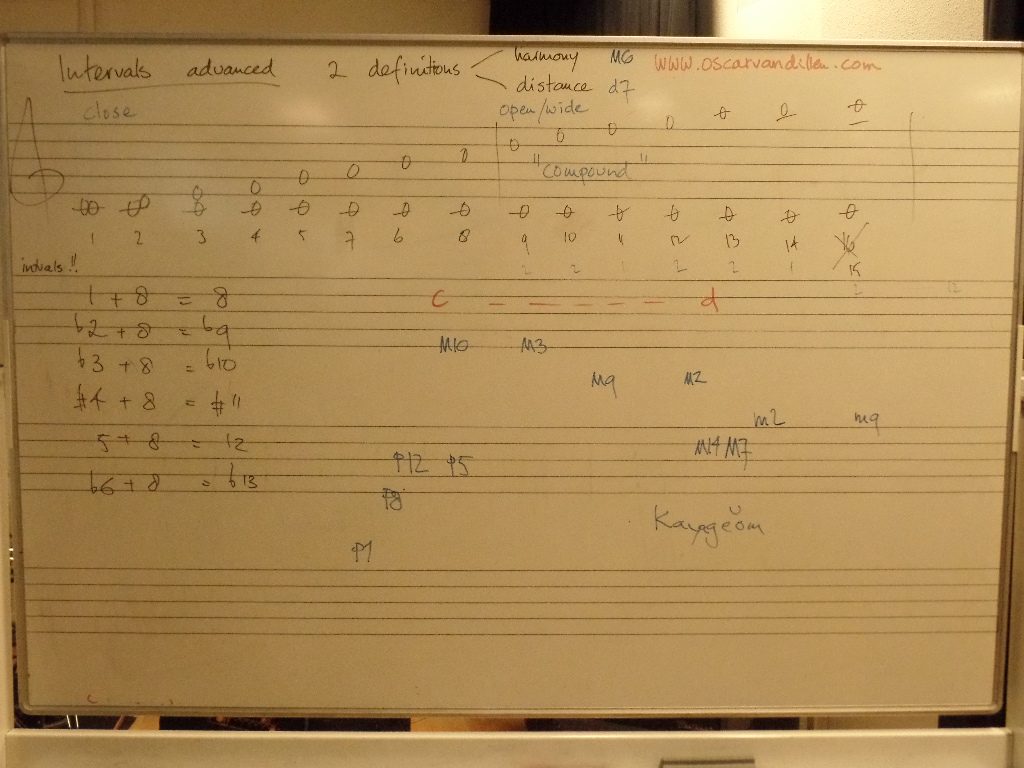 Intervals advanced 2 definitions harmony M6 www.oscarvandillen.com
distance d7
close open/wide
"compound"
1 2 3 4 5 7 6 8 9 10 11 12 13 14 16
2 2 1 2 2 1 15
2 12
1 + 8 = 8 c – – – – – d
b2 + 8 = b9 M10 M3
b3 + 8 = b10 M9 M2
#4 + 8 = #11 m2 m9
5 + 8 = 12 P12 P5 M14 M7
b6 + 8 = b13 P8
P1